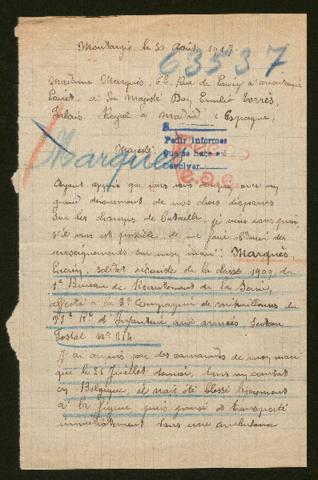 Montargis, le 30 Août 1917
63537
Madame Marquès, 62 Rue de à Montargis
Loiret, à Sa Majesté Don Emilio Torrès,
Palais Royal à Madrid (Espagne)
Pedir informes
que se hace
devolver
Marquès
Majesté
Ayant appris que vous vous occupiez avec un
grand dévouement de nos chers disparus
sur les champs de bataille, je viens vous prier
s'il vous est possible de me faire obtenir des
renseignements sur mon mari: Marquès
soldat réserve de la classe 1909, du
1er Bureau de Recrutement de la Seine,
affecté à la 3e Compagnie de mitrailleuses du
d'Infanterie aux armées, Secteur
Postal No
J'ai appris par des camarades de mon mari
que le 31 Juillet dernier, dans un combat
en Belgique, il avait été blessé légèrement
à la figure puis pansé et transporté
immédiatement dans une ambulance